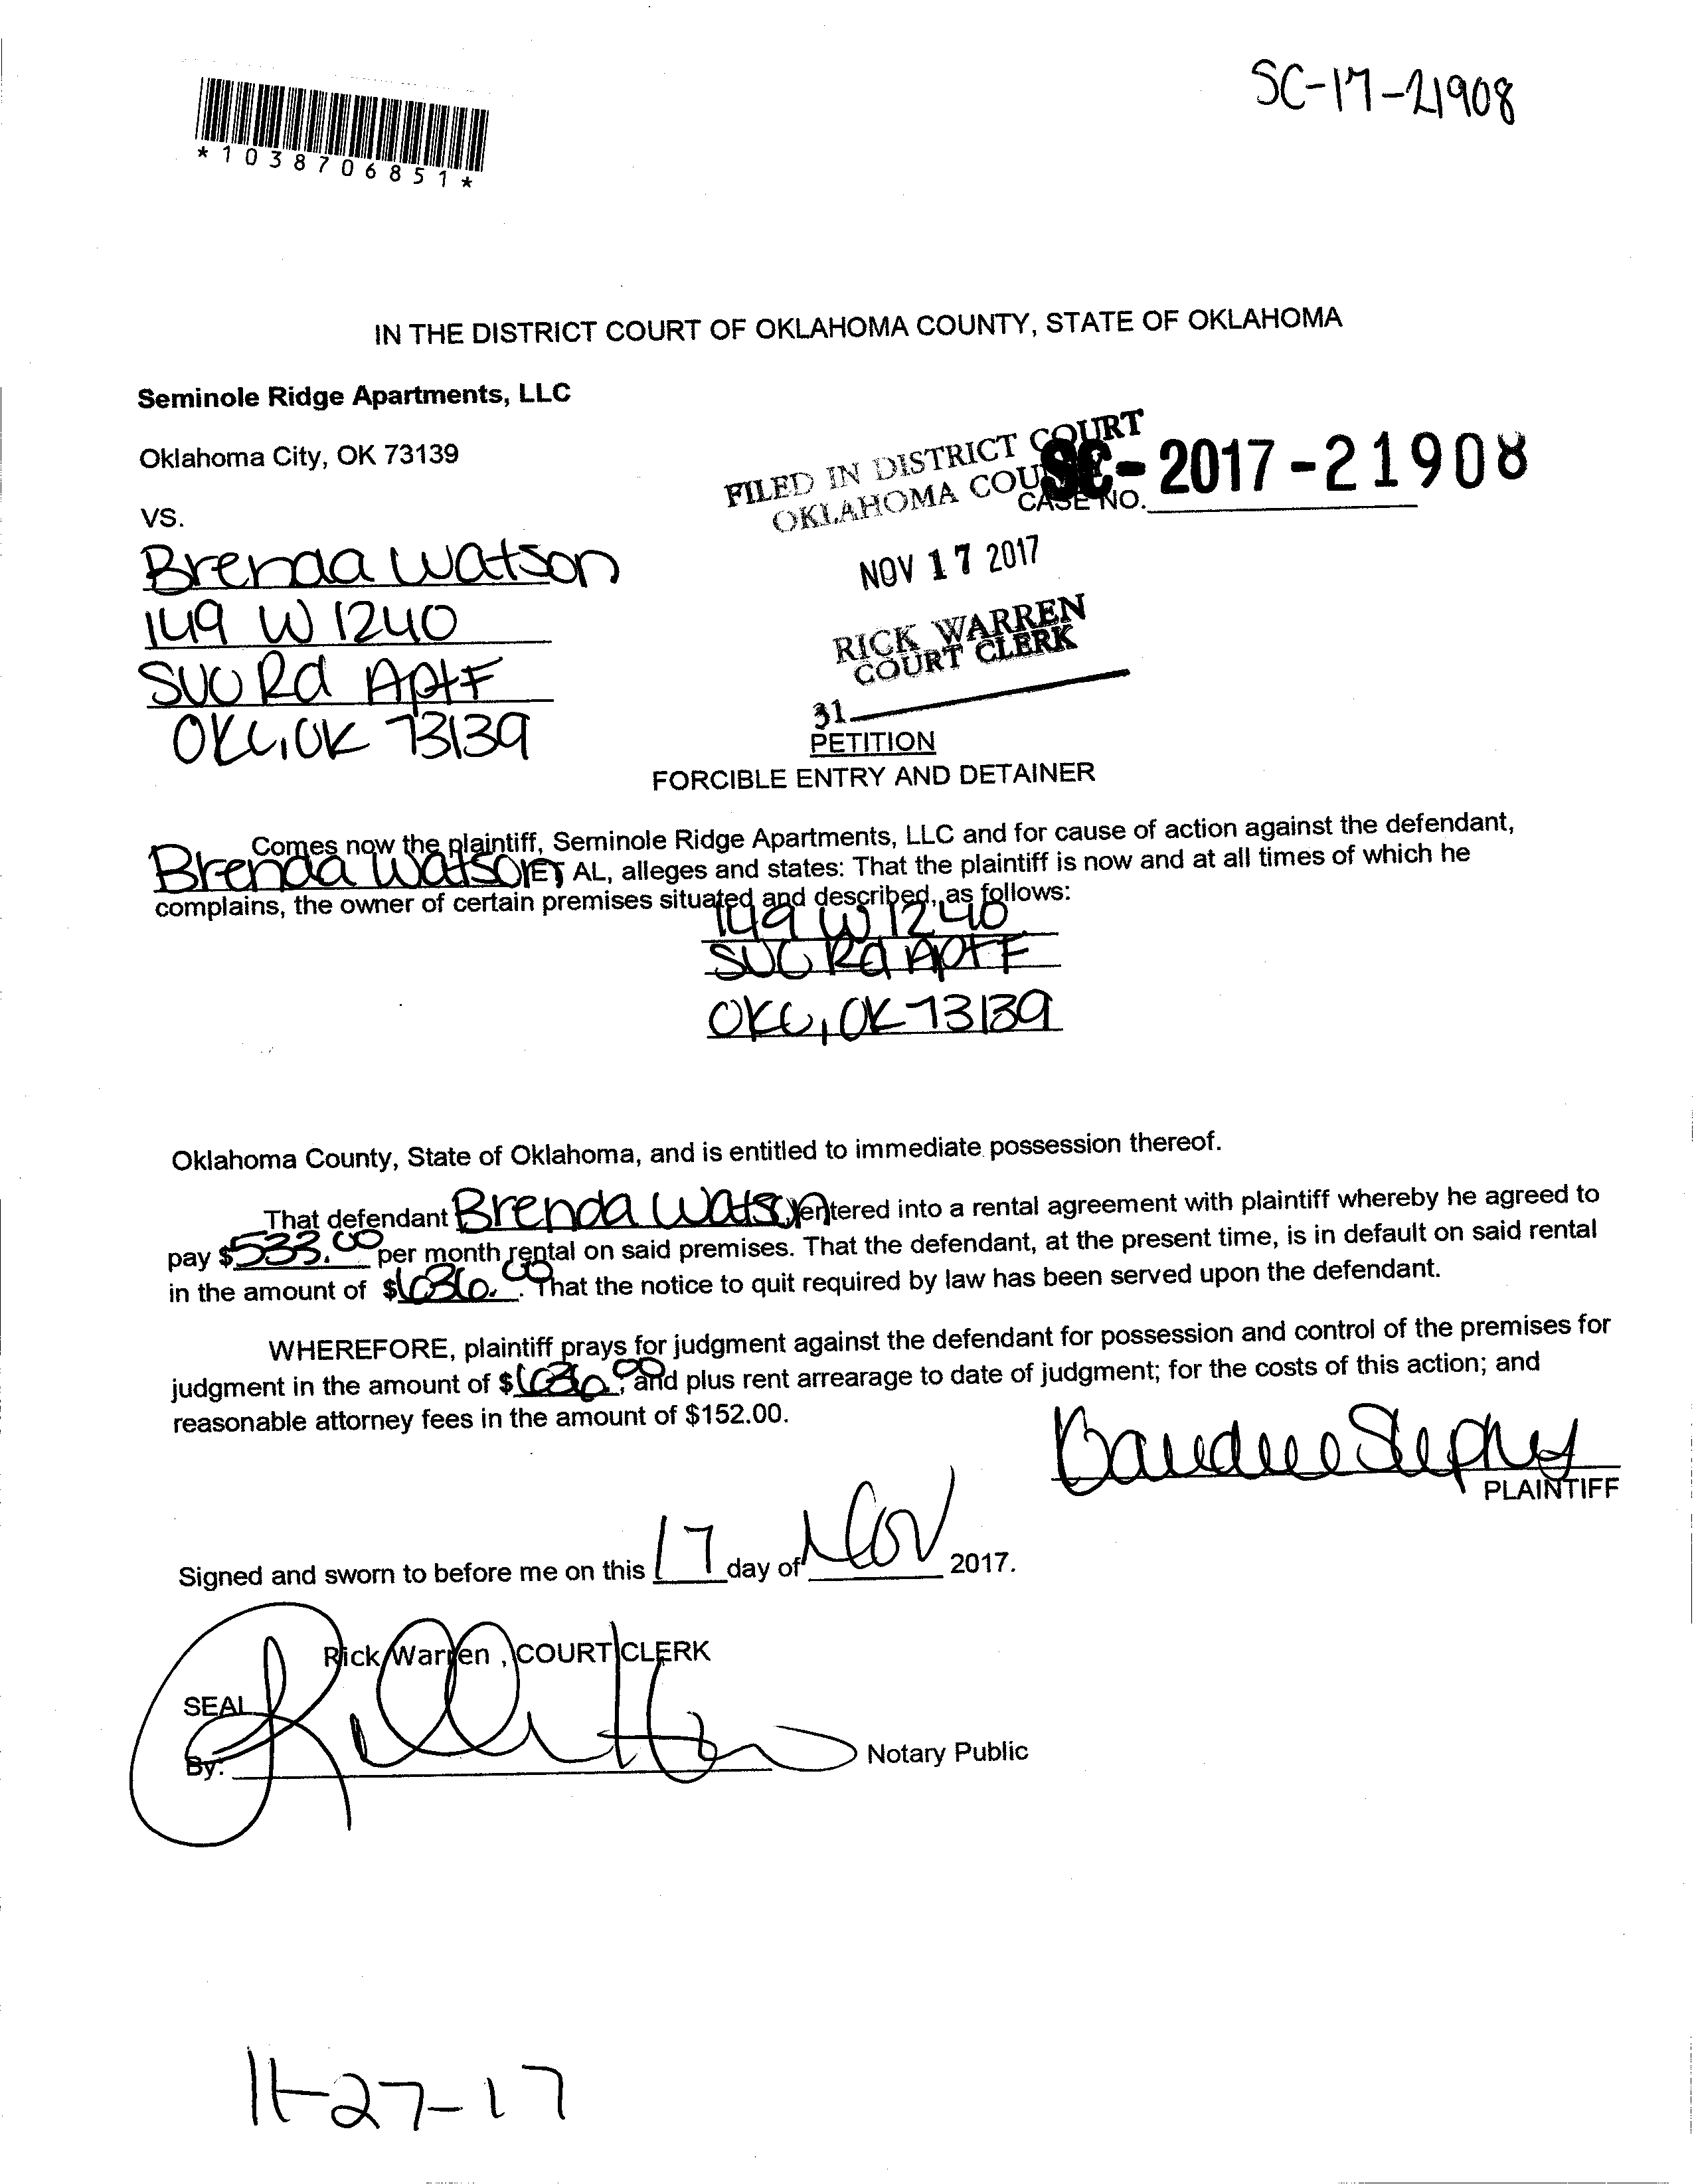 SC-17-21908
*1038706851*
IN THE DISTRICT COURT OF OKLAHOMA COUNTY, STATE OF OKLAHOMA
Seminole Ridge Apartments, LLC
Oklahoma City, OK 73139
FILED IN DISTRICT COURT
OKLAHOMA COU
SC-2017-21908
CASE NO.
VS.
Brenda Watson
149 W 1240
Apt F
OKC, OK 73139
NOV 17 2017
RICK WARREN
COURT CLERK
31
PETITION
FORCIBLE ENTRY AND DETAINER
Comes now the plaintiff, Seminole Ridge Apartments, LLC and for cause of action against the defendant,
Brenda Watson ET AL, alleges and states: That the plaintiff is now and at all times of which he
complains, the owner of certain premises situated and described, as follows:
149 W 1240
Rd Apt F
OKC, OK 73139
Oklahoma County, State of Oklahoma, and is entitled to immediate possession thereof.
That defendant Brenda Watson entered into a rental agreement with plaintiff whereby he agreed to
pay $533.00 per month rental on said premises. That the defendant, at the present time, is in default on said rental
in the amount of $636.00. That the notice to quit required by law has been served upon the defendant.
WHEREFORE, plaintiff prays for judgment against the defendant for possession and control of the premises for
judgment in the amount of $636.00, and plus rent arrearage to date of judgment; for the costs of this action; and
reasonable attorney fees in the amount of $152.00.
PLAINTIFF
Signed and sworn to before me on this 17 day of Nov 2017.
Rick Warren, COURT CLERK
SEAL
By: Notary Public
11-27-17